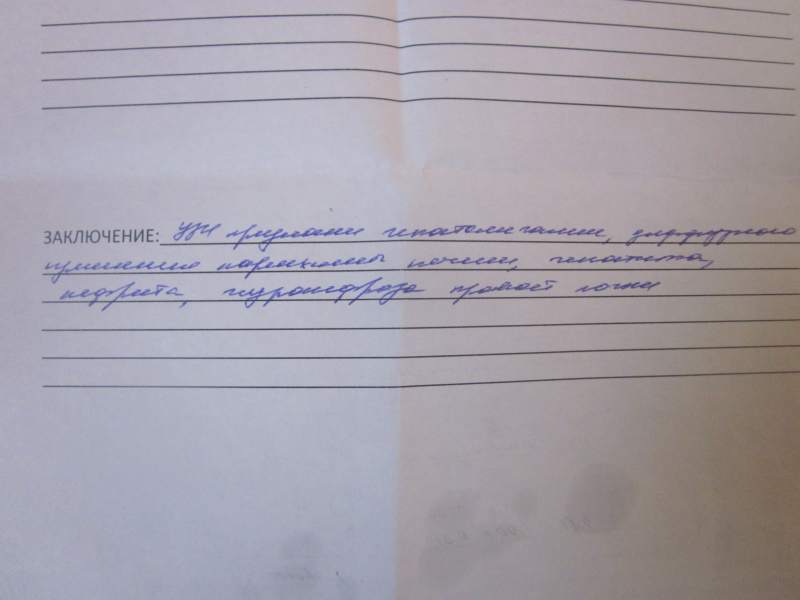 ЗАКЛЮЧЕНИЕ: УЗИ признаки гепатомегалии, диффузного
изменения паренхимы печени, гепатита,
нефрита, гидронефроза правой почки